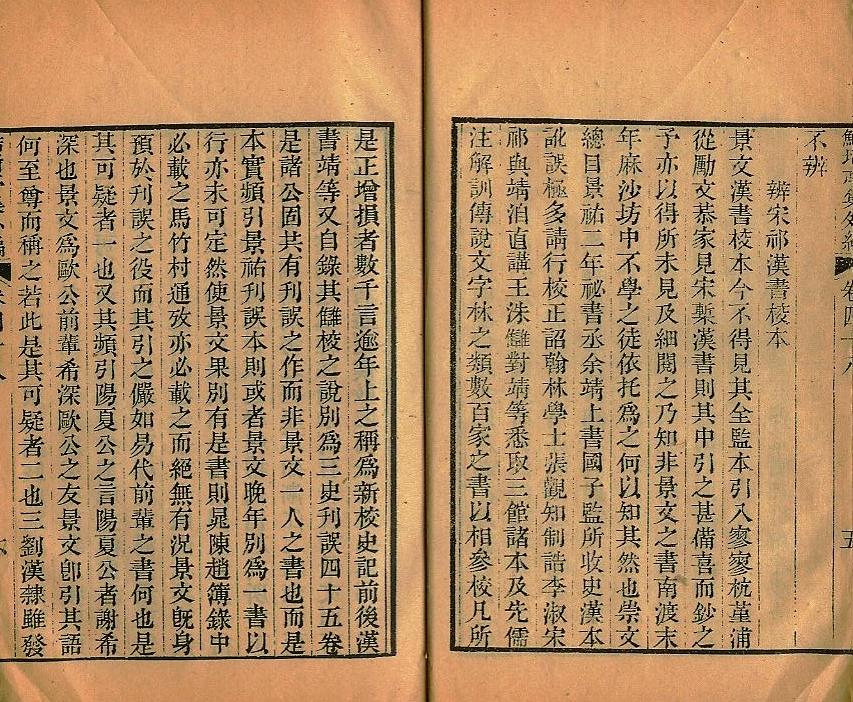 鮚埼亭集外編
卷四十八
五
不辨
辨宋祁漢書校本
景文漢書校本今不得見其全監本引入寥寥杭堇浦
從勵文恭家見宋槧漢書則其中引之甚備喜而鈔之
予亦以得所未見及細閱之乃知非景文之書南渡末
年麻沙坊中不學之徒依托爲之何以知其然也崇文
總目景祐二年祕書丞余靖上書國子監所收史漢本
訛誤極多請行校正詔翰林學士張觀知制誥李淑宋
祁與靖洎直講王洙讎對靖等悉取三館諸本及先儒
注解訓傳說文字林之類數百家之書以相參校凡所
是正增損者數千言逾年上之稱爲新校史記前後漢
書靖等又自錄其讎校之說別爲三史刊誤四十五卷
是諸公固共有刊誤之作而非景文一人之書也而是
本實頻引景祐刊誤本則或者景文晚年別爲一書以
行亦未可定然使景文果別有是書則晁陳趙簿錄中
必載之馬竹村通攷亦必載之而絕無有況景文旣身
預於刊誤之役而其引之儼如易代前輩之書何也是
其可疑者一也又其頻引陽夏公之言陽夏公者謝希
深也景文爲歐公前輩希深歐公之友景文卽引其語
何至尊而稱之若此是其可疑者二也三劉漢隸雖發